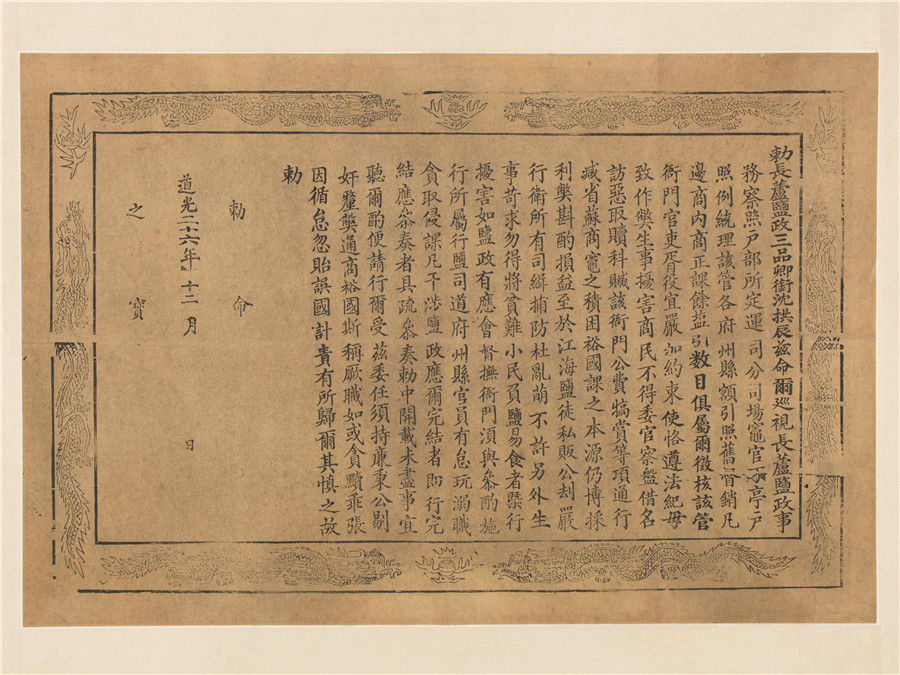 勅長蘆鹽政三品卿銜沈拱辰茲命爾巡視長蘆鹽政事
務察照戶部所定運司分司場竈官亭戶
照例統理該管各府州縣額引照舊督銷凡
邊商內商正課餘盐引數目俱屬爾徵核該管
衙門官吏胥役宜嚴加約束使恪遵法紀毋
致作獘生事擾害商民不得委官察盤借名
訪惡取贖科贓該衙門公費犒賞等項通行
减省蘇商竈之積困裕國課之本源仍博採
利獘斟酌損益至於江海鹽徒私販公刦嚴
行衛所有司緝捕防杜亂萌不許另外生
事苛求勿得將貧難小民負鹽易食者槩行
擾害如鹽政有應會督撫衙門湏與叅酌施
行所屬行鹽司道府州縣官員有怠玩溺職
貪取侵課凡干涉鹽政應爾完結者即行完
結應叅奏者具疏叅奏勅中開載未盡事宜
聽爾酌便請行爾受茲委任須持廉秉公剔
奸釐獘通商裕國斯稱厥職如或貪黷乖張
因循怠忽貽誤國計責有所歸爾其慎之故
勅
勅命
道光二十六年十二月　日
之寶